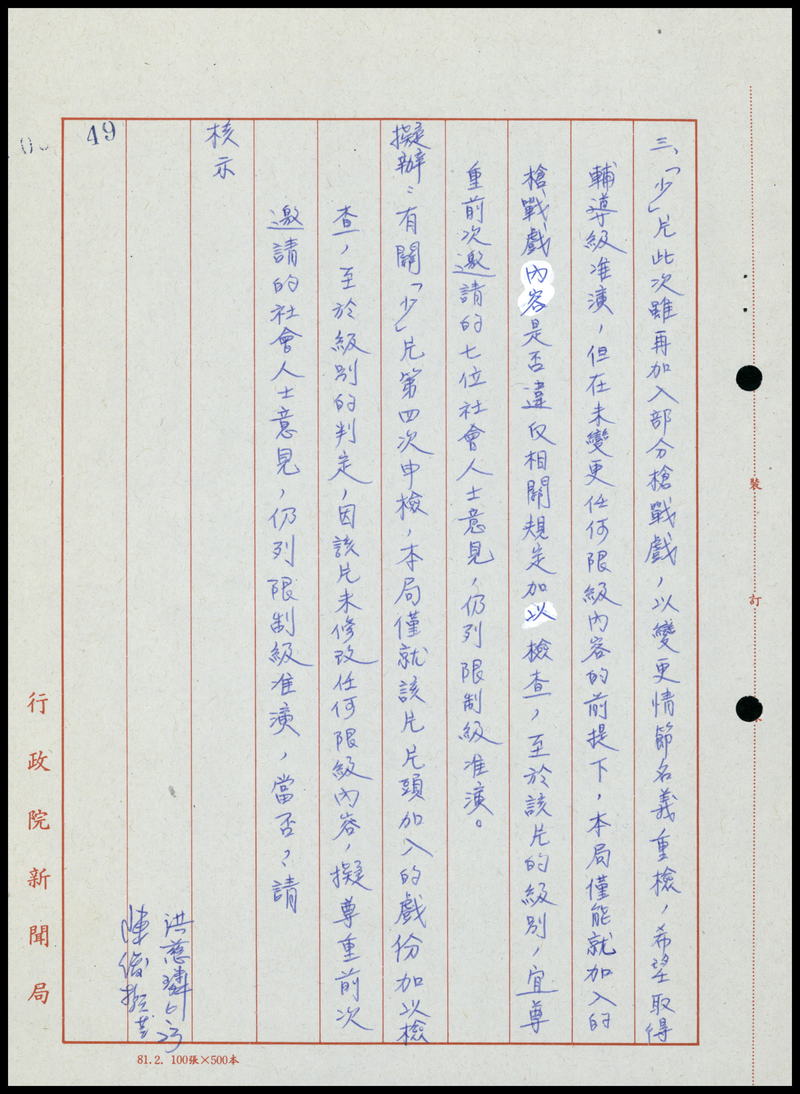 三、「少」片此次雖再加入部分槍戰戲，以變更情節名義重檢，希望取得
輔導級准演，但在未變更任何限級內容的前提下，本局僅能就加入的
槍戰戲內容是否違反相關規定加以檢查，至於該片的級別，宜尊
重前次邀請的七位社會人士意見，仍列限制級准演。
擬辦：有關「少」片第四次申檢，本局僅就該片片頭加入的戲份加以檢
查，至於級別的判定，因該片未修改任何限級內容，擬尊重前次
邀請的社會人士意見，仍列限制級准演，當否？請
核示
洪慈
陳俊
49
行政院新聞局
裝
訂
81.2. 100張×500本